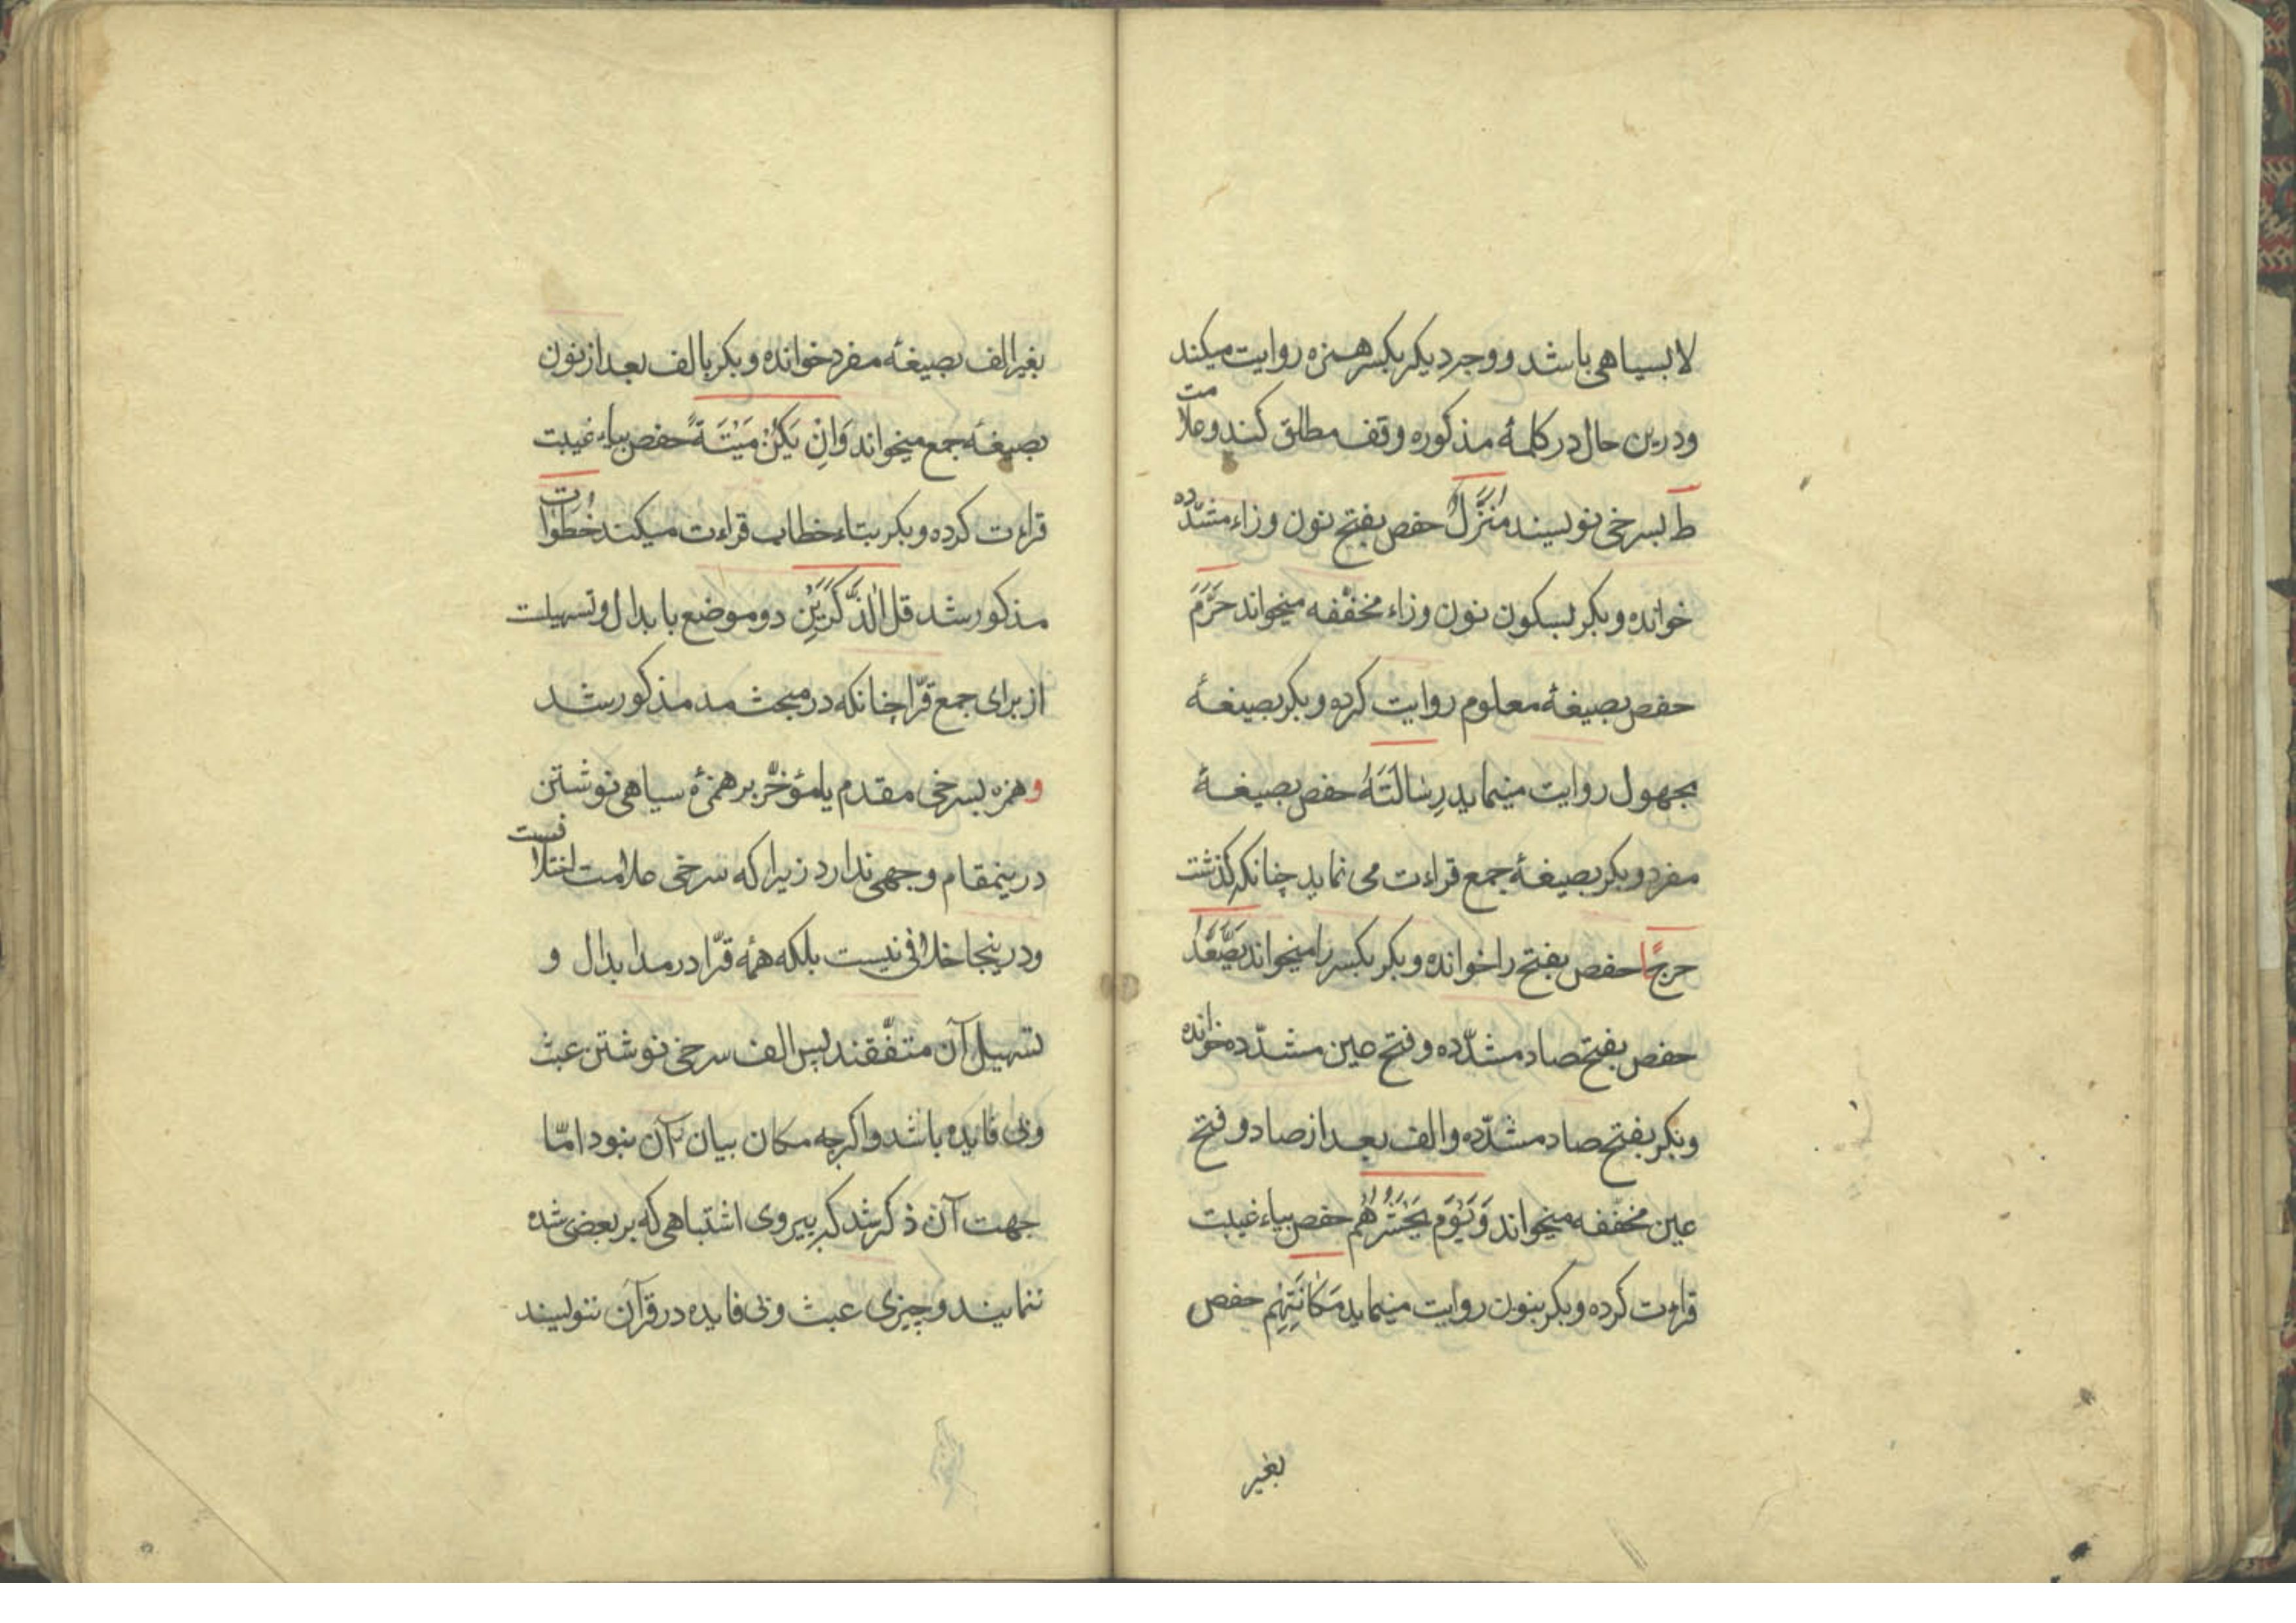 لا بسیاهی باشد و وجه دیکر بکسر همزه روایت میکند
ودرین حال در کلمهٔ مذکوره وقف مطلق کنند وعلامت
ط بسرخی نویسند مُنَزَّلٌ حفص بفتح نون وزاء مشدّده
خوانده وبکر بسکون نون وزاء مخفّفه میخواند حَرَّمَ
حفص بصیغهٔ معلوم روایت کرده وبکر بصیغهٔ
مجهول روایت مینماید رِسَالَتَهُ حفص بصیغهٔ
مفرد وبکر بصیغهٔ جمع قراءت می نماید چنانکه کذشت
حرجًا حفص بفتح را خوانده وبکر بکسر را میخواند یَصَّعَّدُ
حفص بفتح صاد مشدّده وفتح عین مشدّده خوانده
وبکر بفتح صاد مشدّده والف بعد از صاد وفتح
عین مخفّفه میخواند وَیَوْمَ یَحْشُرُهُم حفص بیاء غیبت
قراءت کرده وبکر بنون روایت مینماید مَکَانَتِهِم حفص
بغیر
بغیر الف بصیغهٔ مفرد خوانده وبکر بالف بعد از نون
بصیغهٔ جمع میخواند وَاِنْ یَکُنْ مَیْتَةً حفص بیاء غیبت
قراءت کرده وبکر بتاء خطاب قراءت میکند خُطُوَات
مذکور شد قل الذَّکَرَیْنِ دو موضع با بدال وتسهیلست
از برای جمع قرّا چنانکه در مبحث مد مذکور شد
و همزه بسرخی مقدم یا مؤخّر بر همزهٔ سیاهی نوشتن
درینمقام وجهی ندارد زیرا که سرخی علامت اختلافست
ودرینجا خلافی نیست بلکه همهٔ قرّا در مد ابدال و
تسهیل آن متّفقند پس الف سرخی نوشتن عبث
وبی فایده باشد واکرچه مکان بیان آن نبود امّا
جهت آن ذکر شد که پیروی اشتباهی که بر بعضی شده
ننمایند وچیزی عبث وبی فایده در قرآن ننویسند